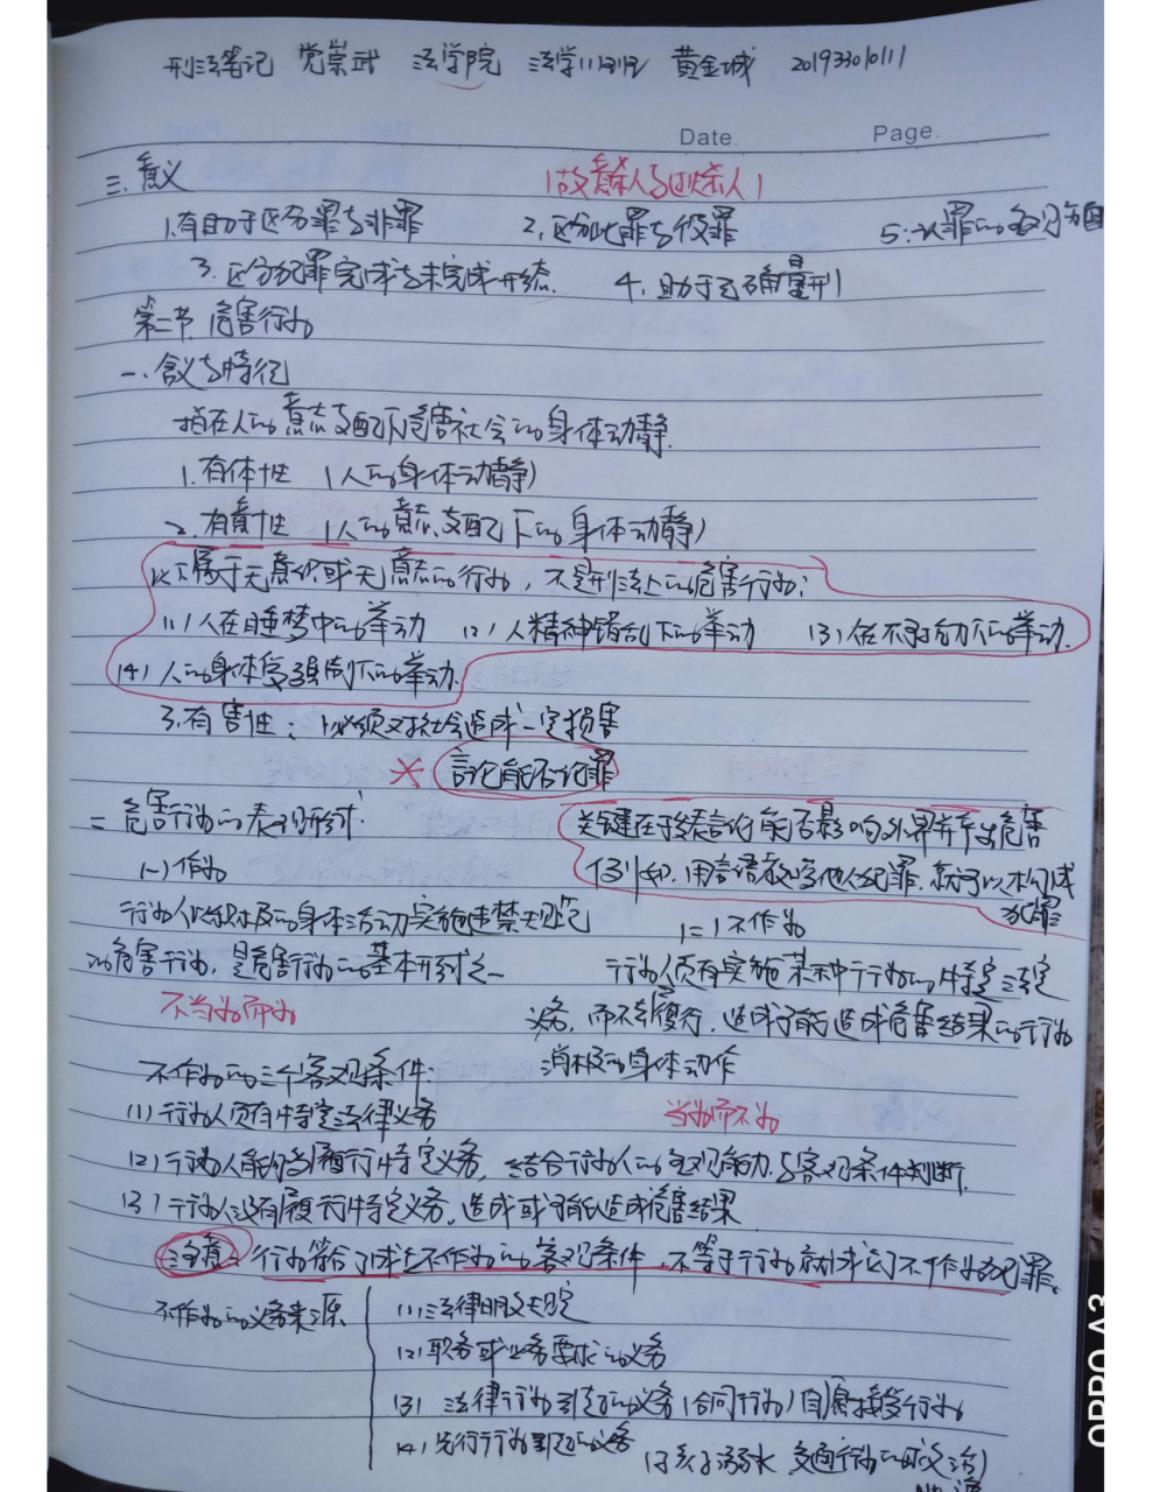 刑法笔记 党崇武 法学院 法学1101班 黄金城 201933010111
Date. Page.
三、意义 (故意杀人与过失杀人)
1.有助于区分罪与非罪 2.区分此罪与彼罪 5.罪的客观方面
3.区分犯罪完成与未完成形态. 4.助于正确量刑
第二节 危害行为
一、含义与特征
指在人的意志支配下危害社会的身体动静.
1.有体性 (人的身体动静)
2.有意性 (人的意志支配下的身体动静)
以下属于无意识或无意志的行为,不是刑法上的危害行为:
(1)人在睡梦中的举动 (2)人精神错乱下的举动 (3)在不可抗力下的举动.
(4)人的身体受强制下的举动.
3.有害性: (必须对社会造成一定损害
言论能否论罪
二 危害行为的表现形式: 关键在于言论能否影响外界并产生危害
(一)作为 例如,用言语教唆他人犯罪,就可以构成犯罪
行为人以积极的身体活动实施违禁规范 (二)不作为
的危害行为,是危害行为的基本形式之一 行为人负有实施某种行为的特定法定
不当为而为 义务,而不履行,造成可能造成危害结果的行为
不作为的三个客观条件: 消极的身体动作
(1)行为人负有特定法律义务 当为而不为
(2)行为人能够履行特定义务,结合行为人的主观能力与客观条件判断.
(3)行为人没有履行特定义务,造成或可能造成危害结果
注意:行为符合了成立不作为的客观条件,不等于行为就成立了不作为犯罪.
不作为的义务来源 (1)法律明文规定
(2)职务或业务要求的义务
(3)法律行为引起的义务(合同行为)自愿接受行为
(4)先行行为引起的义务 (孩子溺水 交通行为
OPPO A3